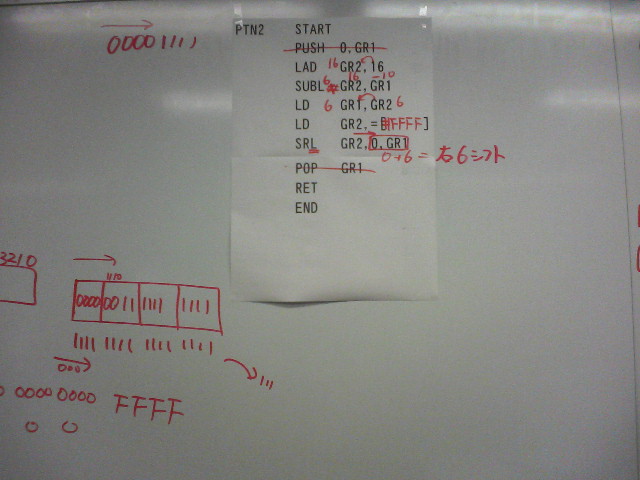 00001111
PTN2 START
PUSH 0,GR1
LAD 16 GR2,16
16 -10
SUBL 6 GR2,GR1
LD 6 GR1,GR2 6
LD GR2,=[#FFFF]
SRL GR2,0,GR1
0+6 = 右6シフト
POP GR1
RET
END
3210
1110
0000 0011 1111 1111
1111 1111 1111 1111
000
111
0 0000 0000 FFFF
0 0